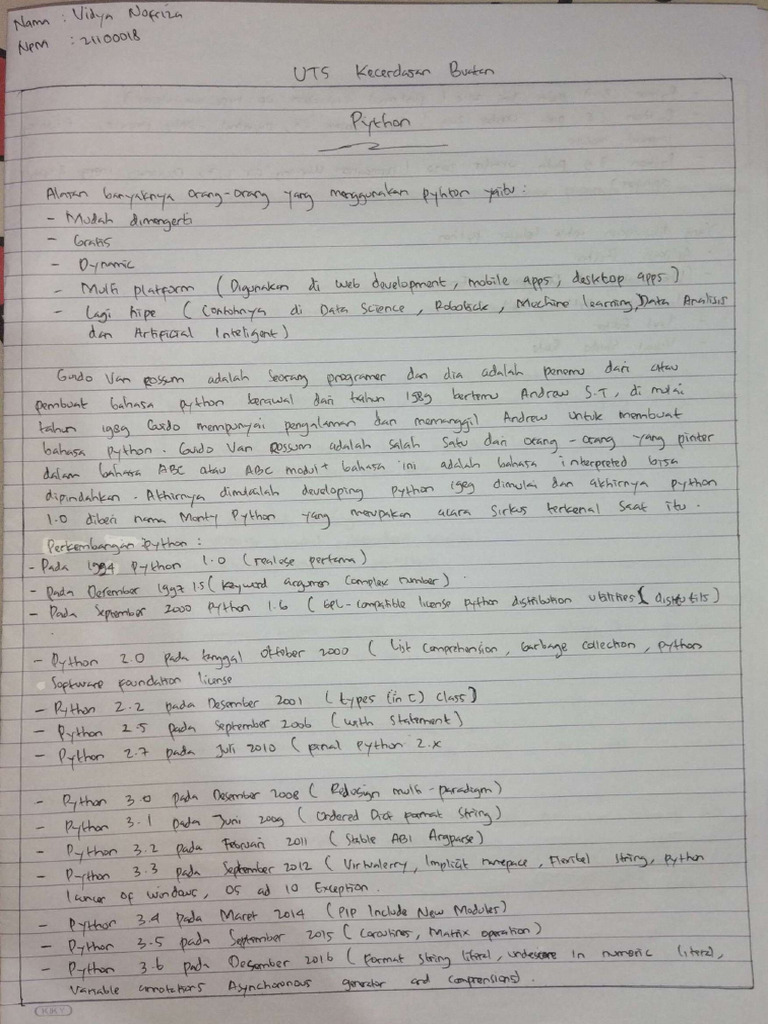 Nama : Vidya Nofriza
Npm : 21100018
UTS Kecerdasan Buatan
Python
Alasan banyaknya orang-orang yang menggunakan pyhton yaitu :
- Mudah dimengerti
- Gratis
- Dynamic
- Multi platform ( Digunakan di web development, mobile apps, desktop apps )
- Lagi hipe ( Contohnya di Data Science, Robotick, Mechine learning, Data Analisis
dan Artificial Inteligent )
Guido Van Rossum adalah seorang programer dan dia adalah penemu dari atau
pembuat bahasa python berawal dari tahun 1989 bertemu Andrew S.T, di mulai
tahun 1989 Guido mempunyai pengalaman dan memanggil Andrew untuk membuat
bahasa python. Guido Van Rossum adalah salah satu dari orang-orang yang pinter
dalam bahasa ABC atau ABC modul+ bahasa ini adalah bahasa interpreted bisa
dipindahkan. Akhirnya dimulailah developing python 1989 dimulai dan akhirnya python
1.0 diberi nama Monty Python yang merupakan acara sirkus terkenal saat itu.
Perkembangan Python :
- Pada 1994 Python 1.0 (realose pertama)
- Pada Desember 1997 1.5 ( keyword argumen complex number )
- Pada September 2000 Python 1.6 ( GPL-compatible license python distribution utilities ( distutils )
- Python 2.0 pada tanggal Oktober 2000 ( List Comprehension, Garbage collection, python
Software foundation license
- Python 2.2 pada Desember 2001 ( types (in C) class )
- Python 2.5 pada September 2006 ( with statement )
- Python 2.7 pada Juli 2010 ( final python 2.x
- Python 3.0 pada Desember 2008 ( Redusign multi-paradigm )
- Python 3.1 pada Juni 2009 ( Ordered Dict format string )
- Python 3.2 pada Februari 2011 ( Stable ABI Argparse )
- Python 3.3 pada September 2012 ( Implicit , Flexibel string, python
of windows, OS ad 10 Exception.
- Python 3.4 pada Maret 2014 ( PIP Include New Modules )
- Python 3.5 pada September 2015 ( Coroutines, Matrix operation )
- Python 3.6 pada Desember 2016 ( Format string literal, undescore in numeric literal,
Variable annotations Asynchoronous generator and comprensions ).
KKY